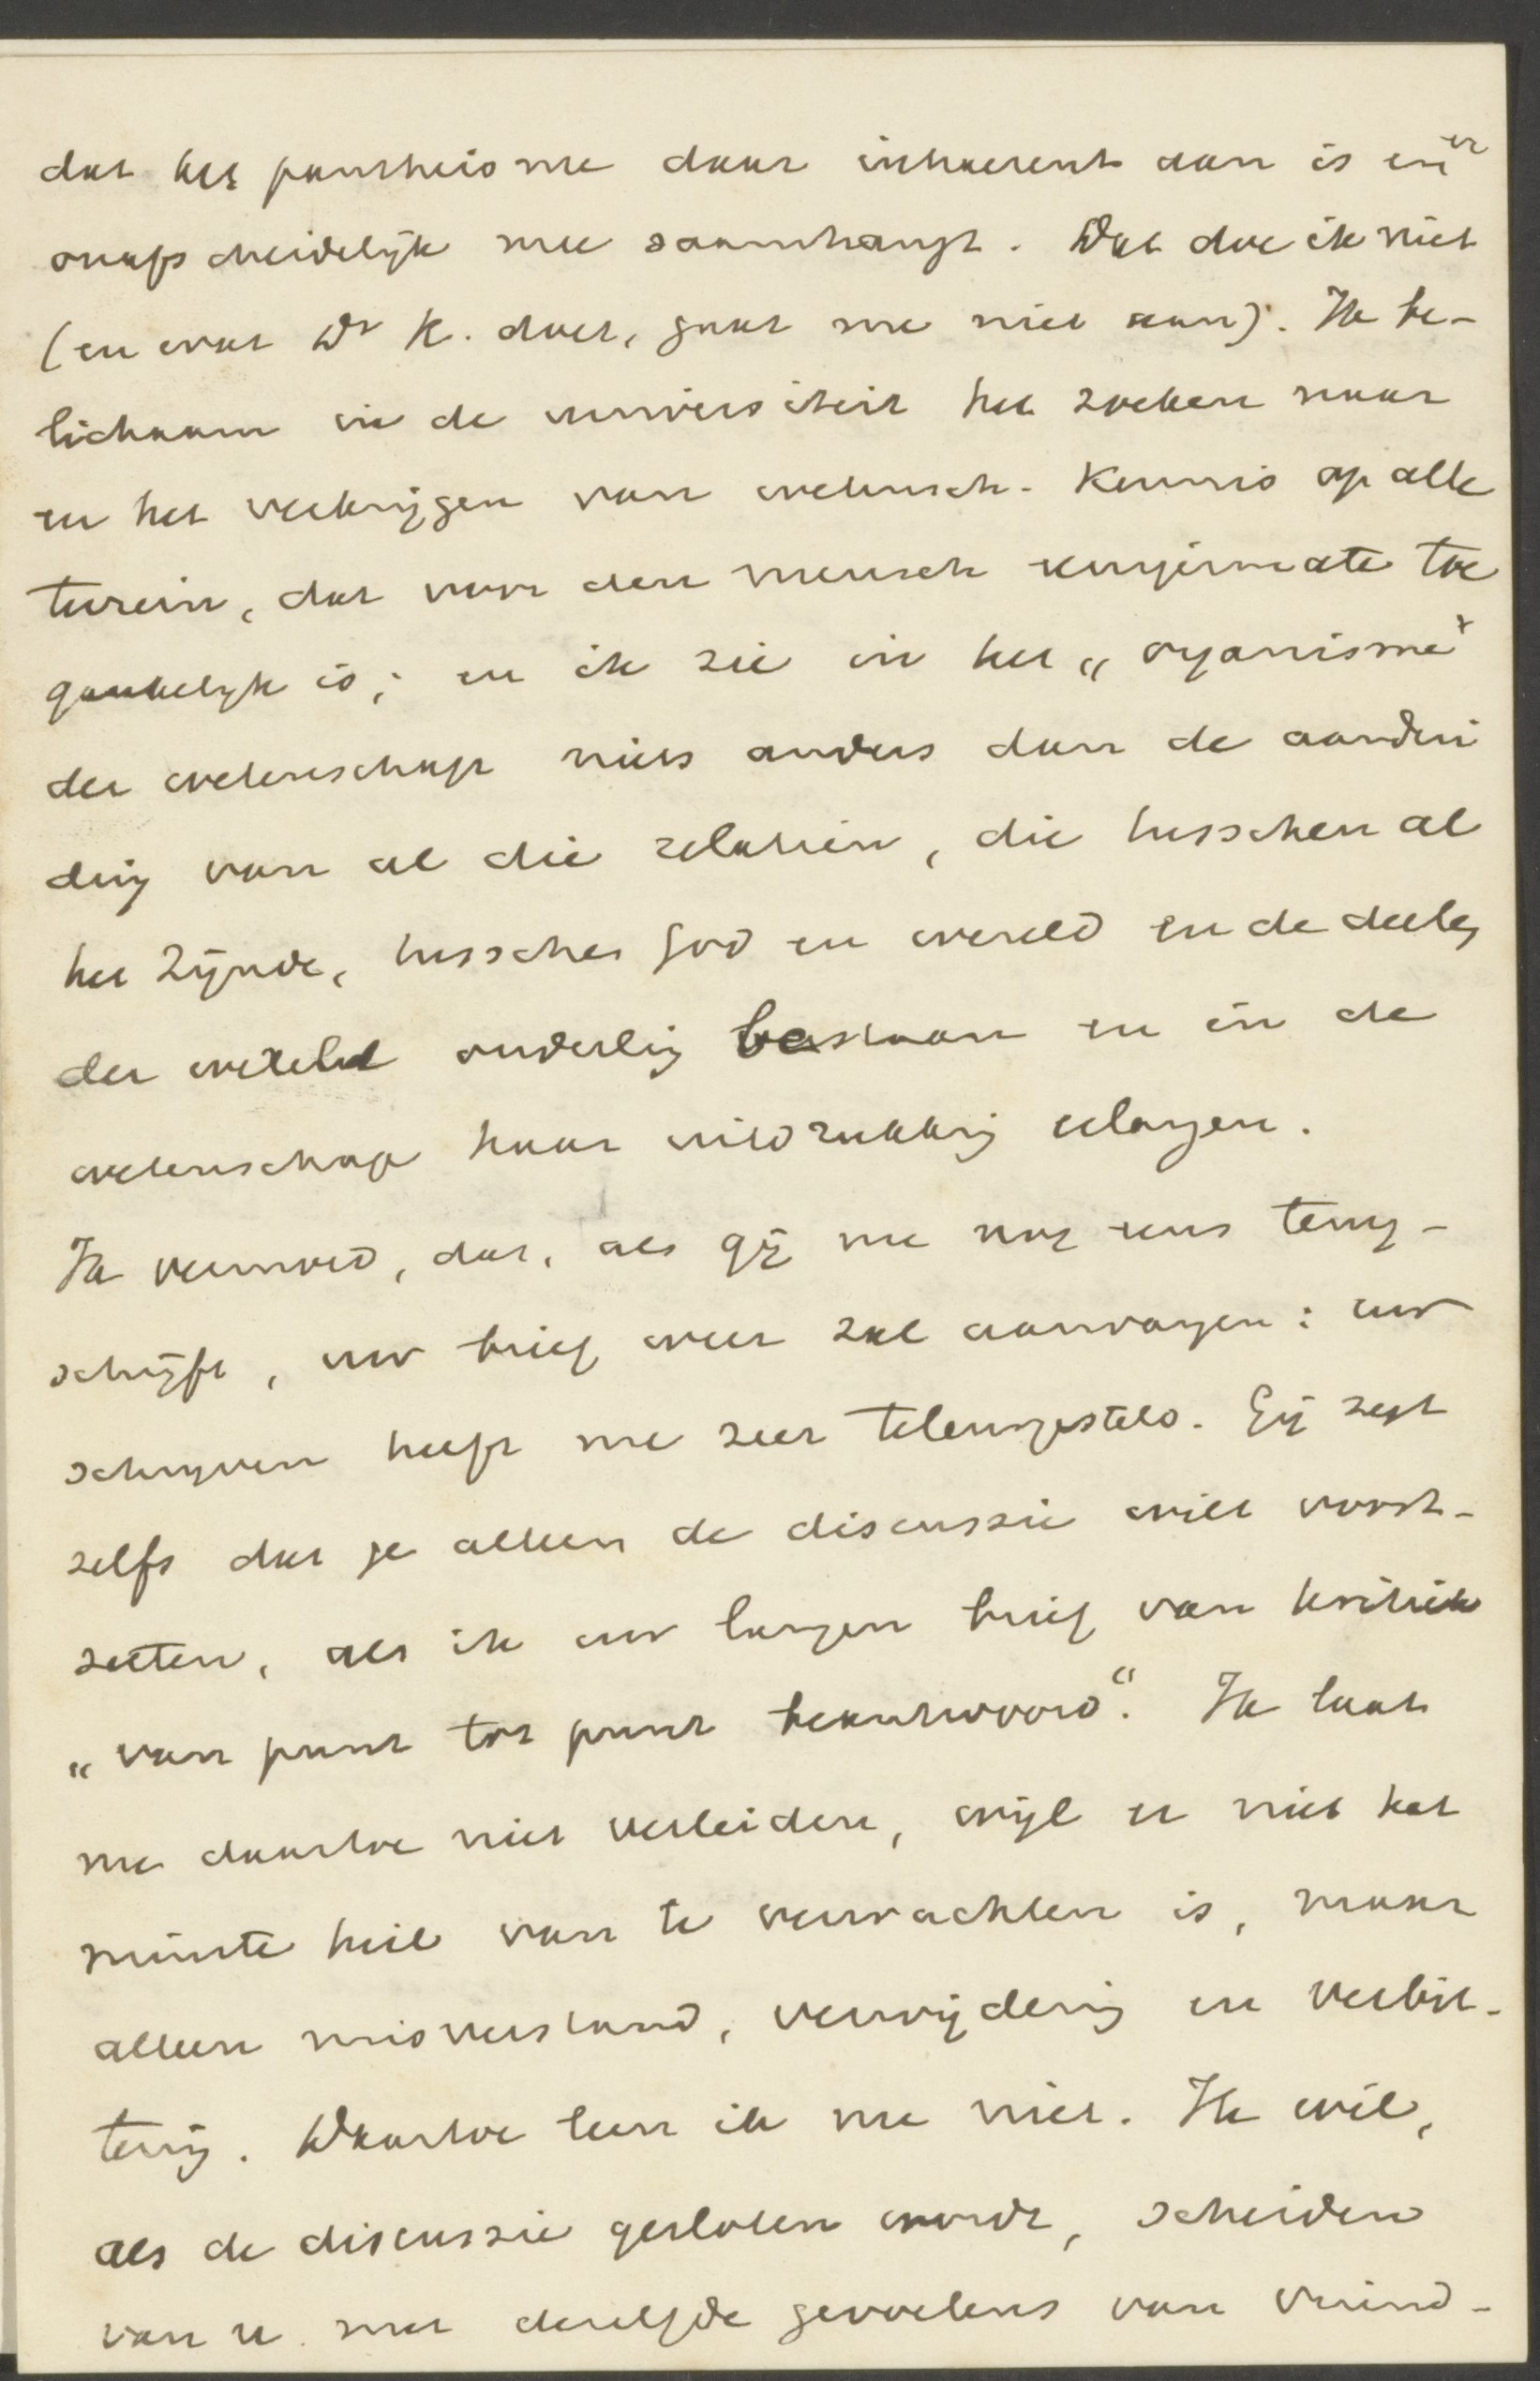 dat het pantheisme daar inhaerent aan is en er
onafscheidelijk mee saamhangt. Dat doe ik niet
(en wat Dr K. doet, gaat me niet aan). Ik be-
lichaam in de universiteit het zoeken naar
en het verkrijgen van wetensch. kennis op alle
terrein, dat voor den mensch eenigermate toe
gankelijk is; en ik zie in het „organisme"
der wetenschap niets anders dan de aandui
ding van al die relatiën, die tusschen al
het zijnde, tusschen God en wereld en de deelen
der wereld onderling bestaan en in de
wetenschap haar uitdrukking erlangen.
Ik vermoed, dat, als gij me nog eens terug-
schrijft, uw brief weer zal aanvangen: uw
schrijven heeft me zeer teleurgesteld. Gij zegt
zelfs dat je alleen de discussie wilt voort-
zetten, als ik uw langen brief van kritiek
„van punt tot punt beantwoord". Ik laat
me daartoe niet verleiden, wijl er niet het
minste heil van te verwachten is, maar
alleen misverstand, verwijdering en verbit-
tering. Daartoe leen ik me niet. Ik wil,
als de discussie gesloten wordt, scheiden
van u met dezelfde gevoelens van vriend-